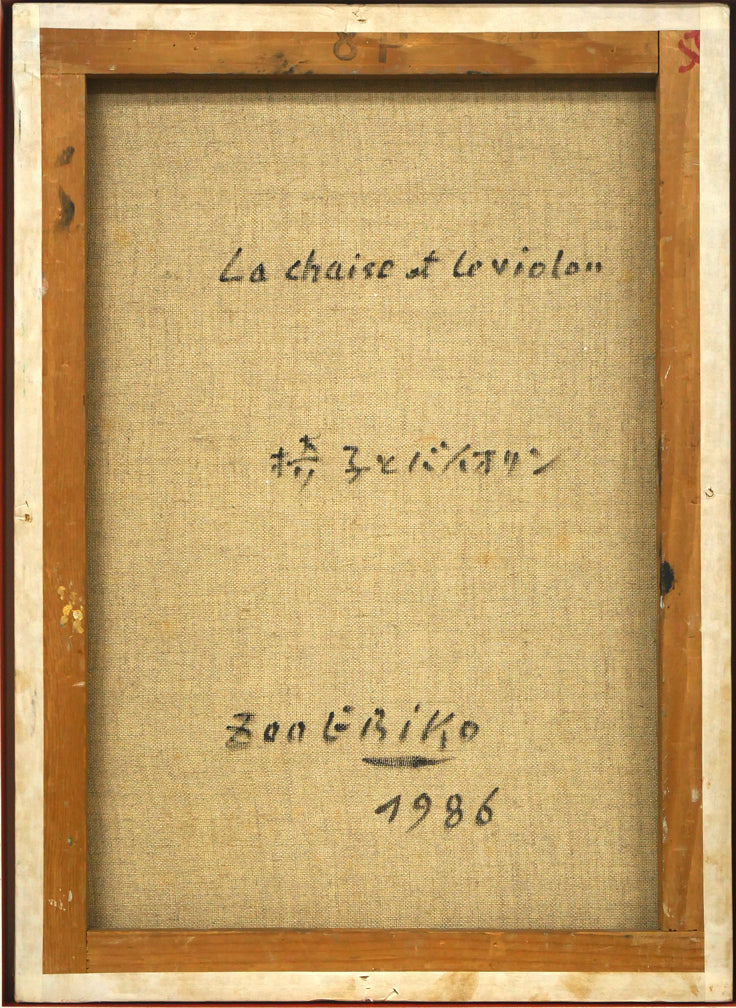 8F
La chaise et le violon
椅子とバイオリン
Zoo ERiKo
1986